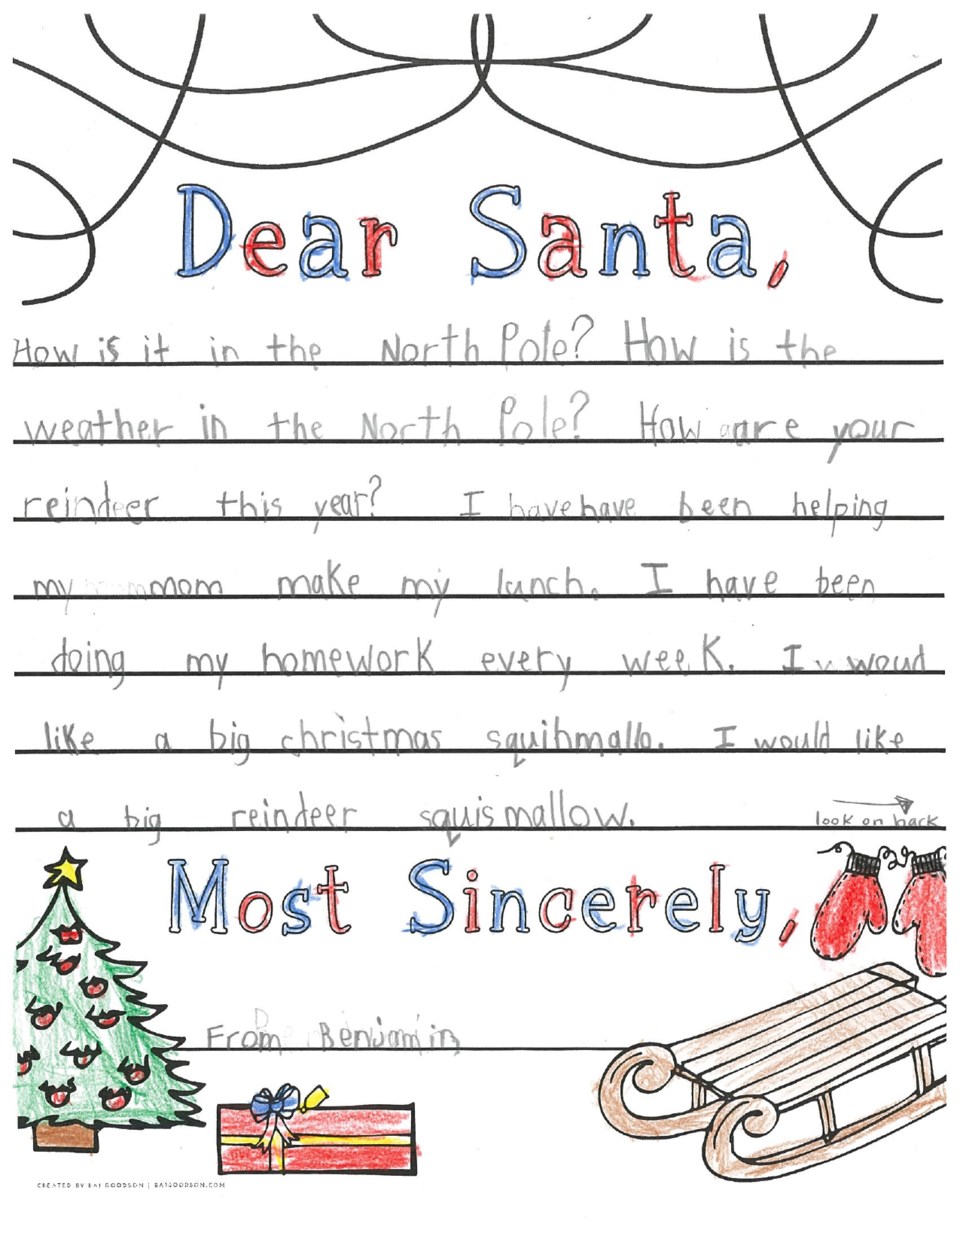 Dear Santa,
How is it in the North Pole? How is the
weather in the North Pole? How are your
reindeer this year? I have have been helping
my mom make my lunch. I have been
doing my homework every week. I woud
like a big christmas squihmallo. I would like
a big reindeer squismallow.
look on back
Most Sincerely,
From Benjamin
CREATED BY RAI GOODSON | RAIGOODSON.COM